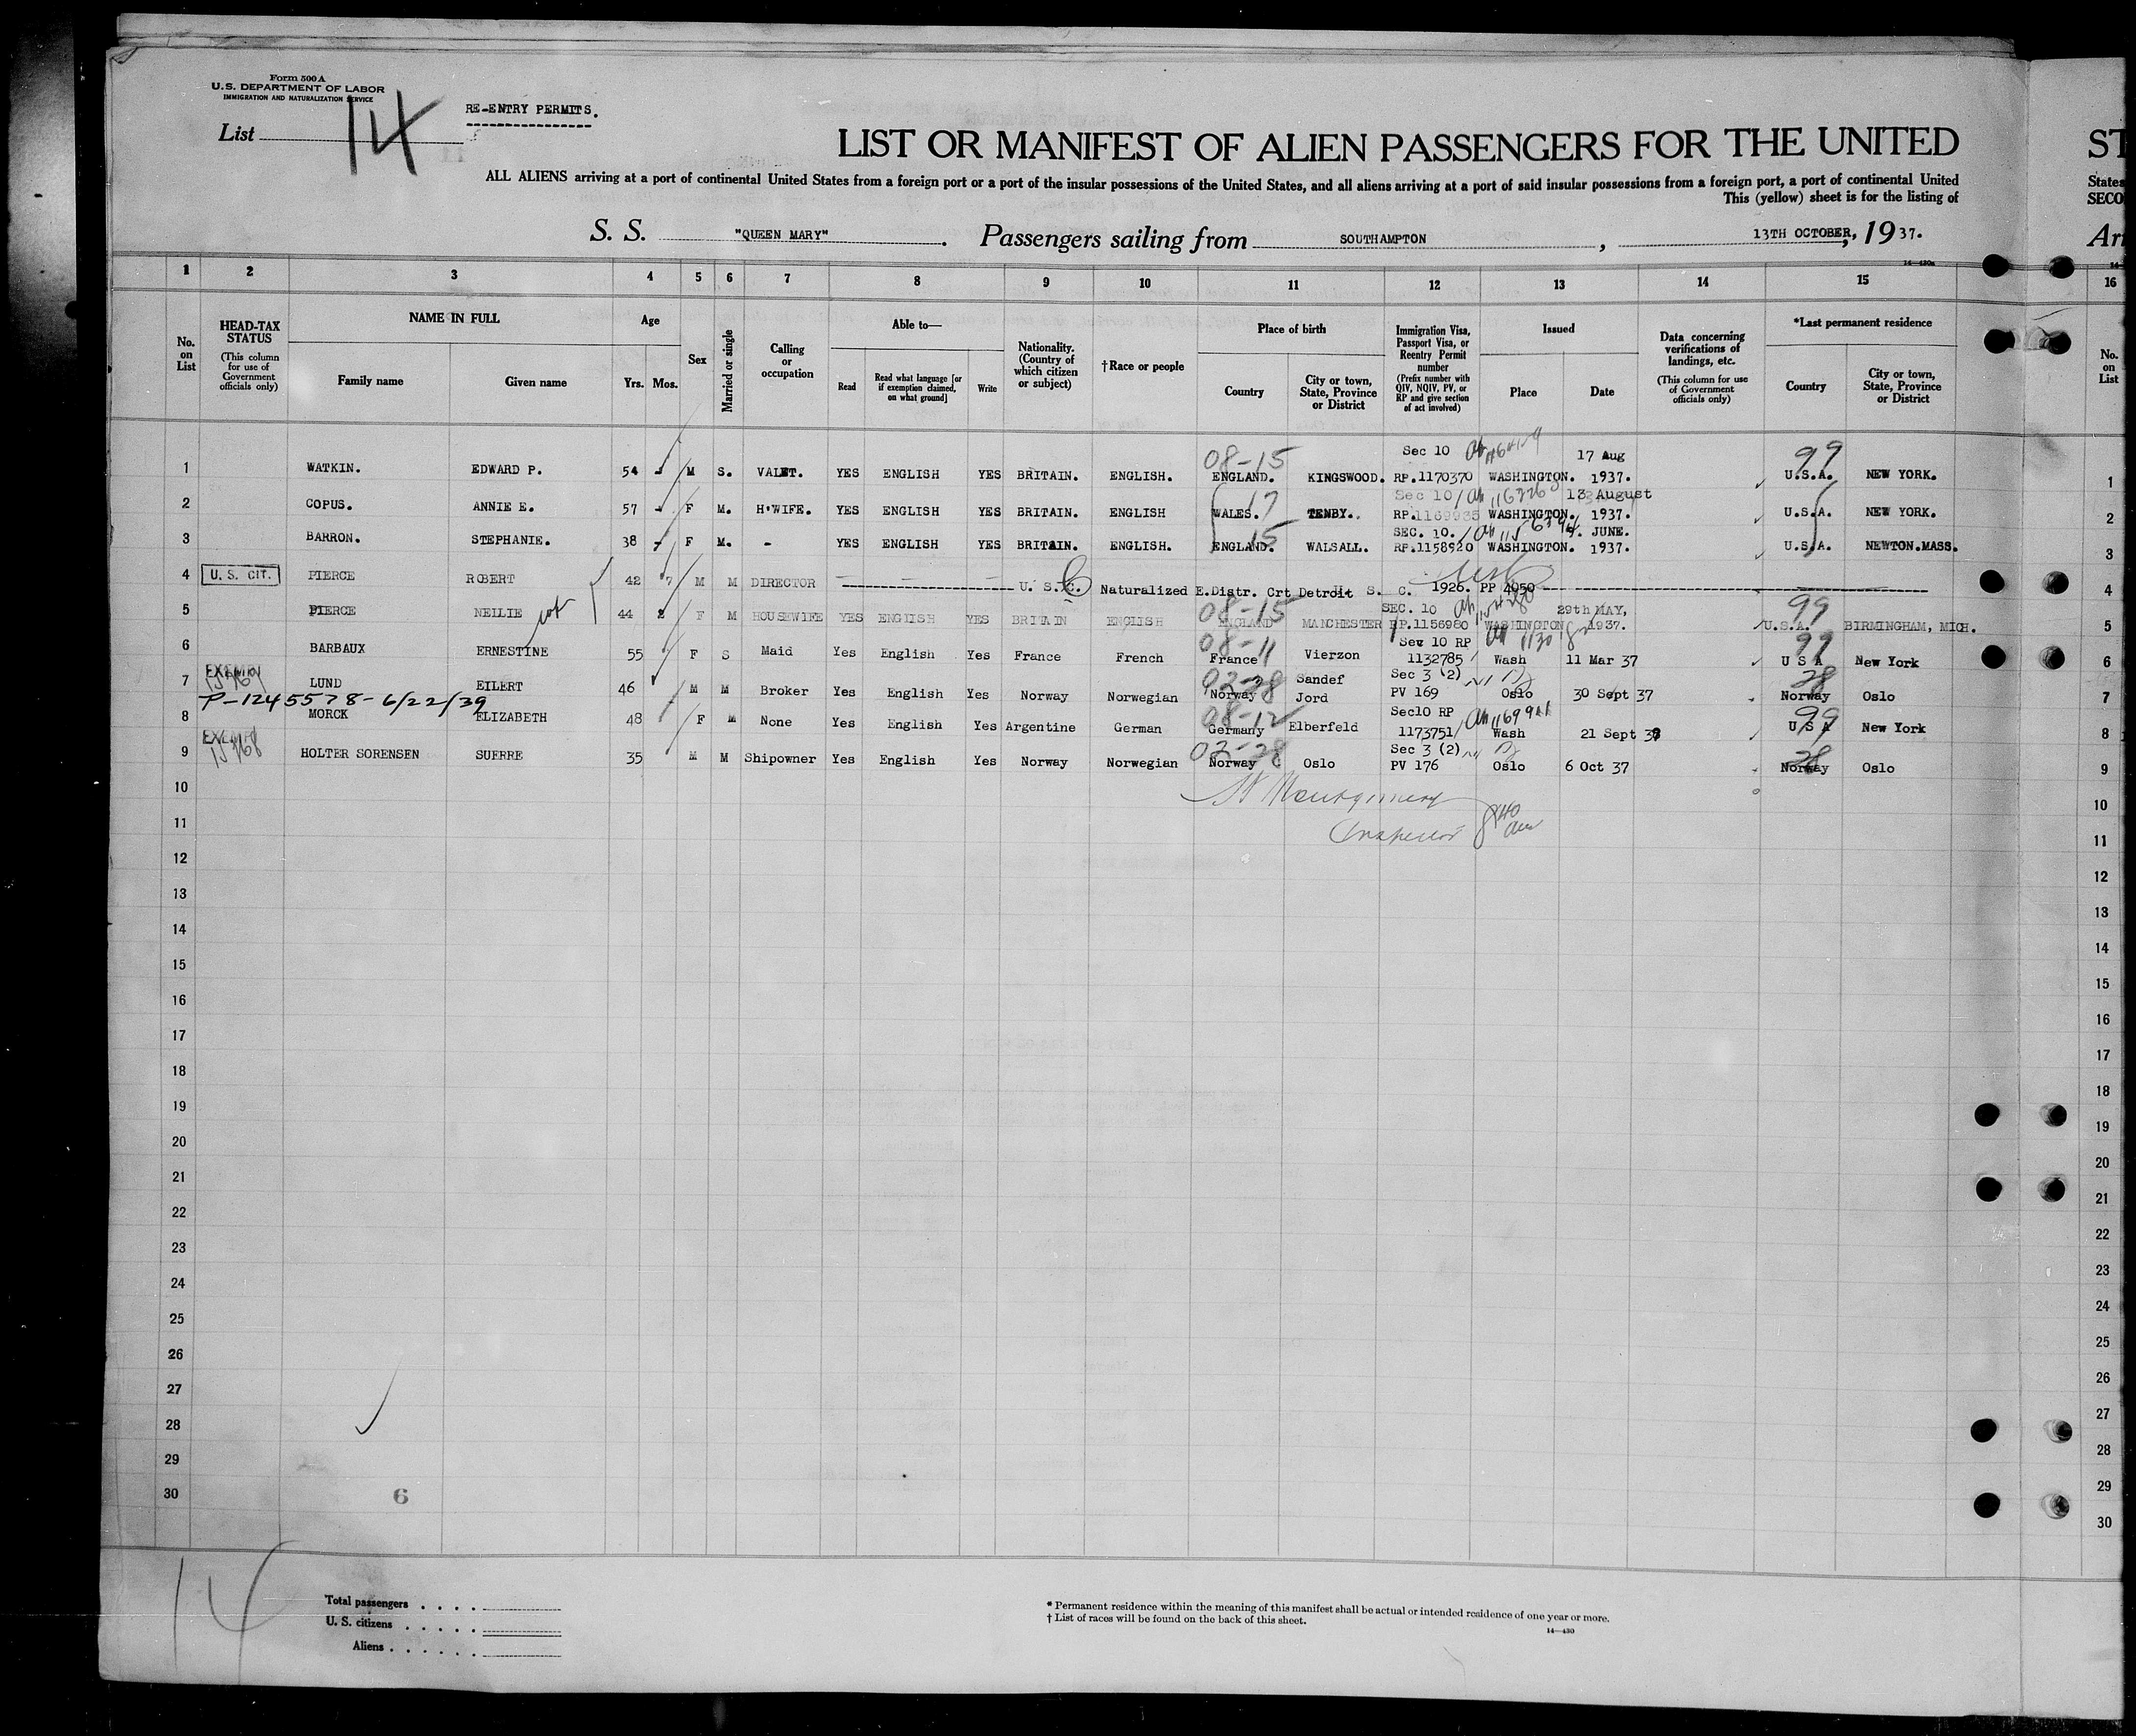 Form 500 A
U.S. DEPARTMENT OF LABOR
IMMIGRATION AND NATURALIZATION SERVICE
List 14
RE-ENTRY PERMITS.
LIST OR MANIFEST OF ALIEN PASSENGERS FOR THE UNITED
ALL ALIENS arriving at a port of continental United States from a foreign port or a port of the insular possessions of the United States, and all aliens arriving at a port of said insular possessions from a foreign port, a port of continental United
This (yellow) sheet is for the listing of
S. S. "QUEEN MARY". Passengers sailing from SOUTHAMPTON, 13TH OCTOBER, 1937.
ST
States
SECO
Arr
14—430a
1 2 3 4 5 6 7 8 9 10 11 12 13 14 15 16
No. on List
HEAD-TAX STATUS (This column for use of Government officials only)
NAME IN FULL
Family name Given name
Age
Yrs. Mos.
Sex
Married or single
Calling or occupation
Able to—
Read
Read what language [or if exemption claimed, on what ground]
Write
Nationality. (Country of which citizen or subject)
†Race or people
Place of birth
Country
City or town, State, Province or District
Immigration Visa, Passport Visa, or Reentry Permit number (Prefix number with QIV, NQIV, PV, or RP and give section of act involved)
Issued
Place Date
Data concerning verifications of landings, etc. (This column for use of Government officials only)
*Last permanent residence
Country
City or town, State, Province or District
No. on List
08-15 Sec 10 17 Aug 99
1 WATKIN. EDWARD P. 54 - M S. VALET. YES ENGLISH YES BRITAIN. ENGLISH. ENGLAND. KINGSWOOD. RP.1170370 WASHINGTON. 1937. U.S.A. NEW YORK. 1
17 Sec 10 13 August
2 COPUS. ANNIE E. 57 - F M. H'WIFE. YES ENGLISH YES BRITAIN. ENGLISH WALES. TENBY. RP.1169935 WASHINGTON. 1937. U.S.A. NEW YORK. 2
15 SEC. 10. JUNE.
3 BARRON. STEPHANIE. 38 - F M. - YES ENGLISH YES BRITAIN. ENGLISH. ENGLAND. WALSALL. RP.1158920 WASHINGTON. 1937. U.S.A. NEWTON.MASS. 3
4 U. S. CIT. PIERCE ROBERT 42 7 M M DIRECTOR U. S. C. Naturalized E.Distr. Crt Detroit S. C. 1926. PP 4050 4
08-15 SEC. 10 29th MAY, 99
5 PIERCE NELLIE 44 2 F M HOUSEWIFE YES ENGLISH YES BRITAIN ENGLISH ENGLAND MANCHESTER RP.1156980 WASHINGTON 1937. U.S.A. BIRMINGHAM, MICH. 5
08-11 Sec 10 RP 99
6 BARBAUX ERNESTINE 55 F S Maid Yes English Yes France French France Vierzon 1132785 Wash 11 Mar 37 U S A New York 6
EXEMPT 02-28 Sandef Sec 3 (2) 28
7 LUND EILERT 46 M M Broker Yes English Yes Norway Norwegian Norway Jord PV 169 Oslo 30 Sept 37 Norway Oslo 7
P-1245578-6/22/39
08-12 Sec10 RP 99
8 MORCK ELIZABETH 48 F M None Yes English Yes Argentine German Germany Elberfeld 1173751 Wash 21 Sept 37 U S A New York 8
EXEMPT 02-28 Sec 3 (2) 28
9 HOLTER SORENSEN SUERRE 35 M M Shipowner Yes English Yes Norway Norwegian Norway Oslo PV 176 Oslo 6 Oct 37 Norway Oslo 9
10 Montgomery 10
11 Inspector 11
12 12
13 13
14 14
15 15
16 16
17 17
18 18
19 19
20 20
21 21
22 22
23 23
24 24
25 25
26 26
27 27
28 28
29 29
30 6 30
14
Total passengers
U. S. citizens
Aliens
* Permanent residence within the meaning of this manifest shall be actual or intended residence of one year or more.
† List of races will be found on the back of this sheet.
14—430